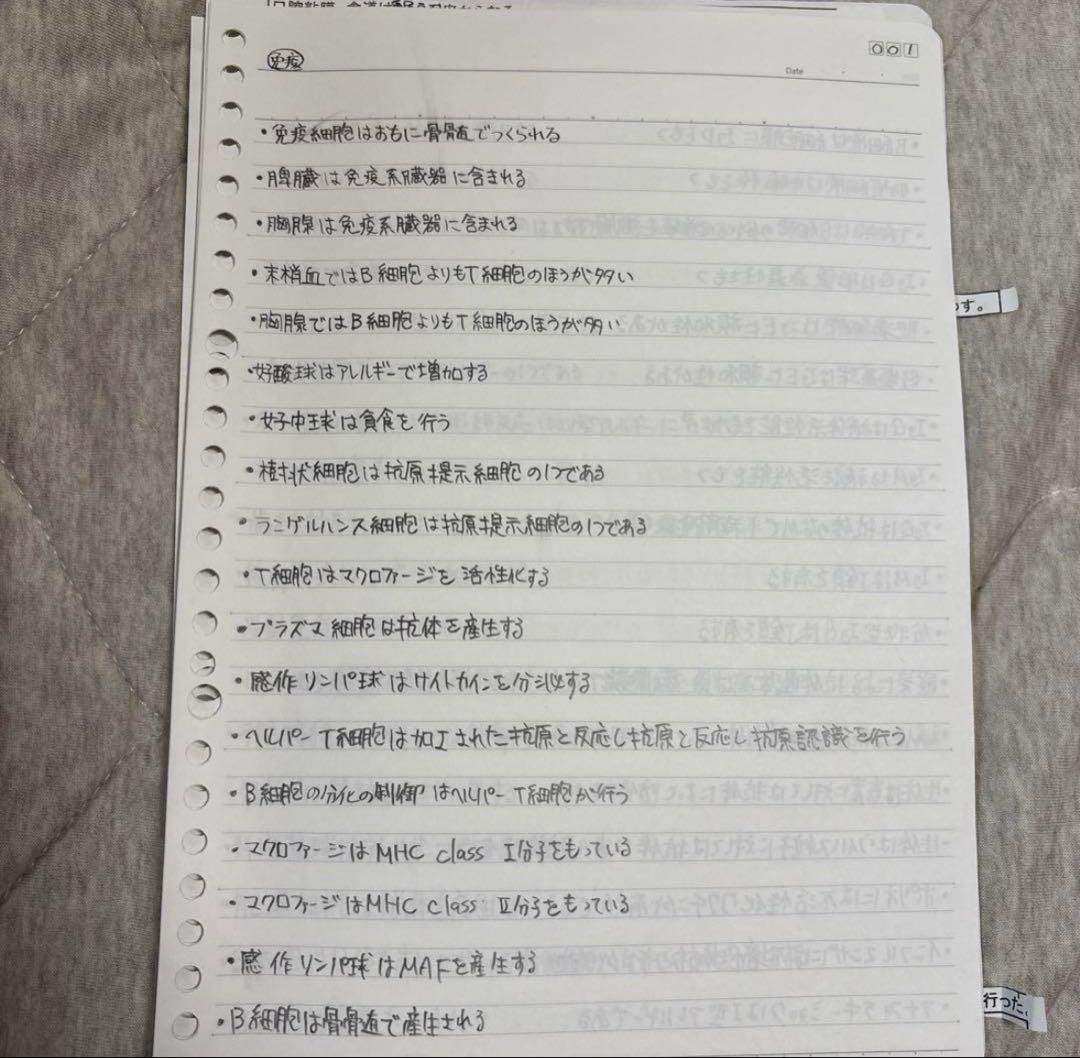 免疫
001
Date
・免疫細胞はおもに骨髄でつくられる
・脾臓は免疫系臓器に含まれる
・胸腺は免疫系臓器に含まれる
・末梢血ではB細胞よりもT細胞のほうが多い
・胸腺ではB細胞よりもT細胞のほうが多い
・好酸球はアレルギーで増加する
・好中球は貪食を行う
・樹状細胞は抗原提示細胞の1つである
・ランゲルハンス細胞は抗原提示細胞の1つである
・T細胞はマクロファージを活性化する
・プラズマ細胞は抗体を産生する
・感作リンパ球はサイトカインを分泌する
・ヘルパーT細胞は加工された抗原と反応し抗原と反応し抗原認識を行う
・B細胞の分化の制御はヘルパーT細胞が行う
・マクロファージはMHC class Ⅰ分子をもっている
・マクロファージはMHC class Ⅱ分子をもっている
・感作リンパ球はMAFを産生する
・B細胞は骨髄で産生される
す。
行った。